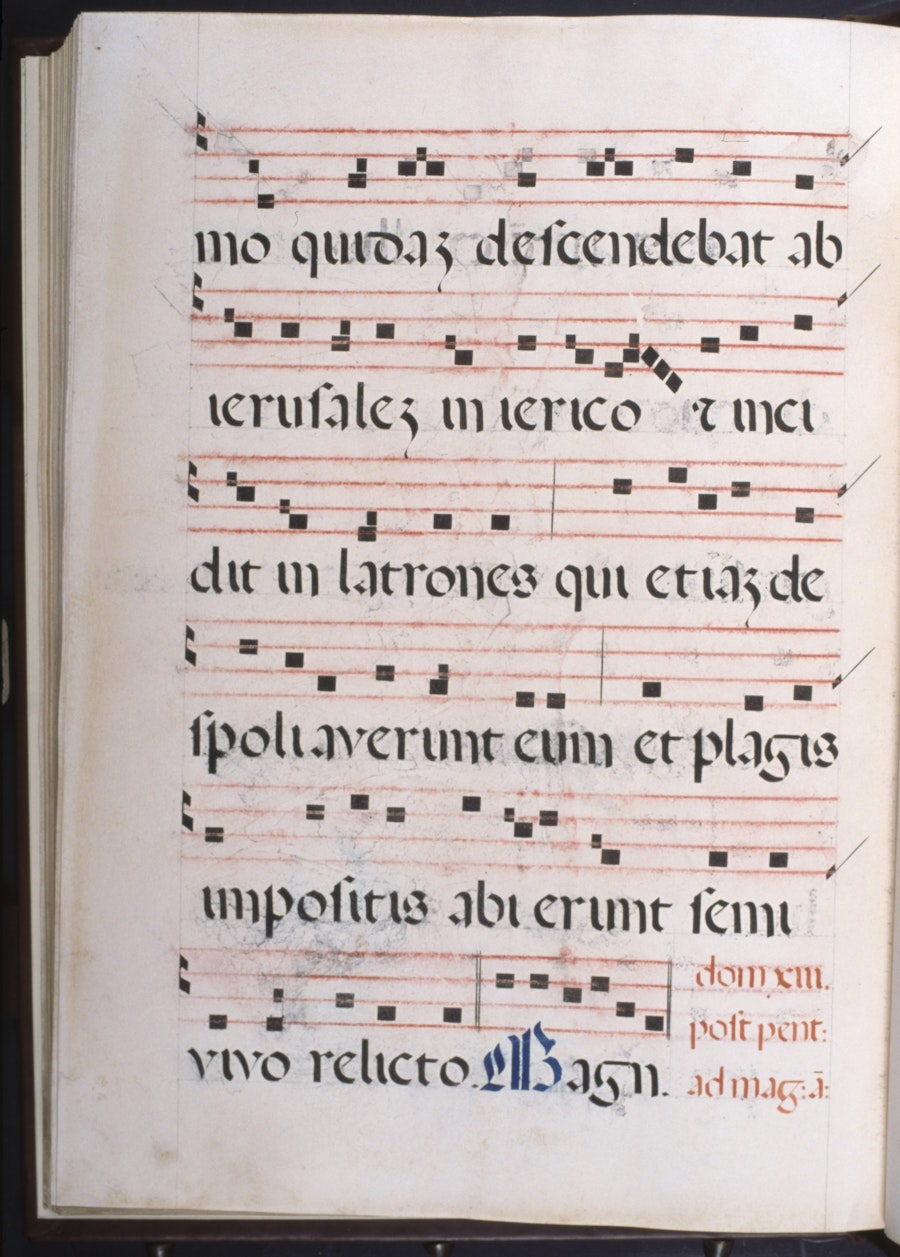 mo quidaz deſcendebat ab
ieruſalez in ierico ⁊ inci
dit in latrones qui etiaz de
ſpoliaverunt eum et plagis
impoſitis abi erunt ſemi
vivo relicto. Magn.
dom xiii.
poſt pent:
ad mag: ā: